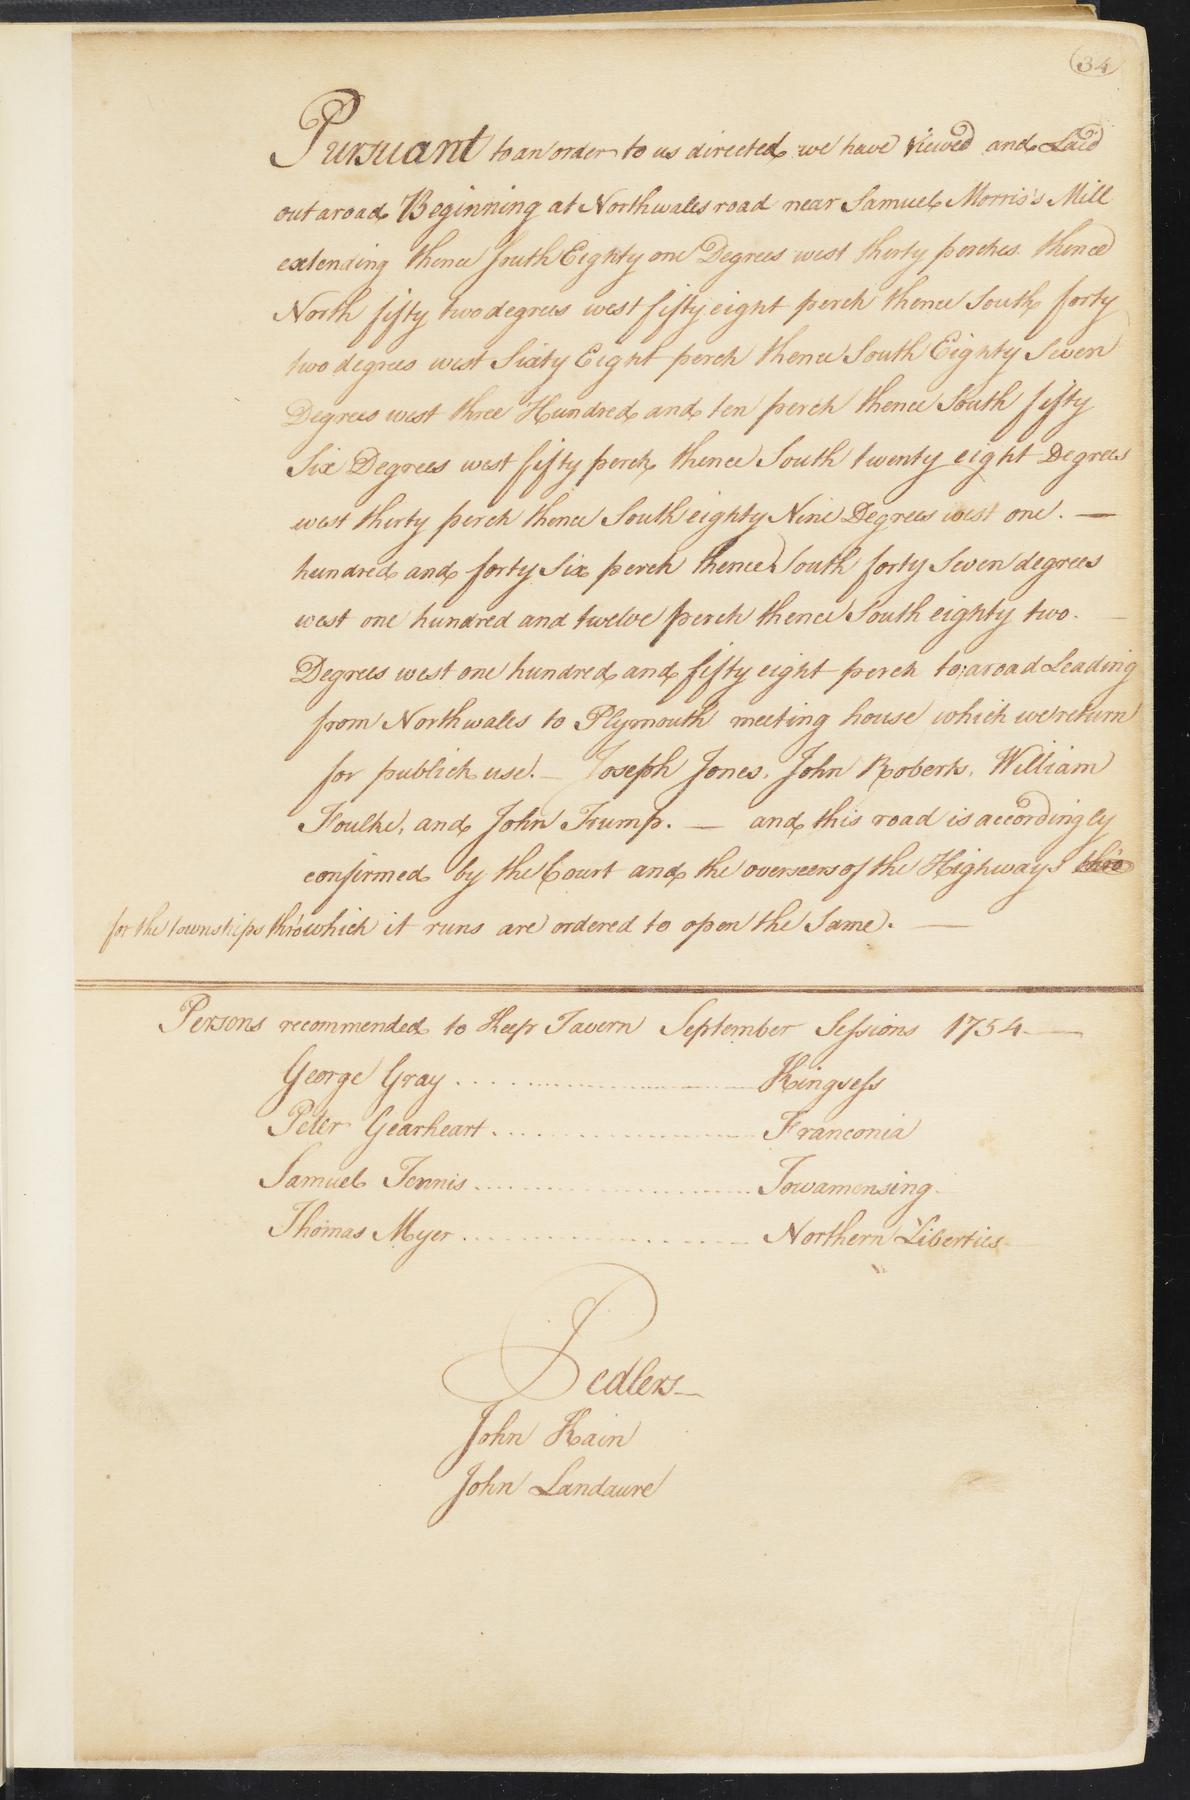 34
Pursuant to an order to us directed we have Viewed and Laid
out a road Beginning at Northwales road near Samuel Morris's Mill
extending thence South Eighty one Degrees west thirty perches. thence
North fifty two degrees west fifty eight perch thence South forty
two degrees west Sixty Eight perch thence South Eighty Seven
Degrees west three Hundred and ten perch thence South fifty
Six Degrees west fifty perch, thence South twenty eight Degrees
west thirty perch thence South eighty Nine Degrees west one. —
hundred and forty Six perch thence South forty Seven degrees
west one hundred and twelve perch thence South eighty two. —
Degrees west one hundred and fifty eight perch to a road Leading
from Northwales to Plymouth meeting house which we return
for publick use. — Joseph Jones, John Roberts, William
Foulke, and John Trump. — and this road is accordingly
confirmed by the Court and the overseers of the Highways thro
for the townships thro which it runs are ordered to open the Same. —
Persons recommended to Keep Tavern September Sessions 1754 —
George Gray .................... Kingsess
Peter Gearheart .................... Franconia
Samuel Tennis .................... Towamensing
Thomas Myer .................... Northern Liberties
Pedlers —
John Kain
John Landaure